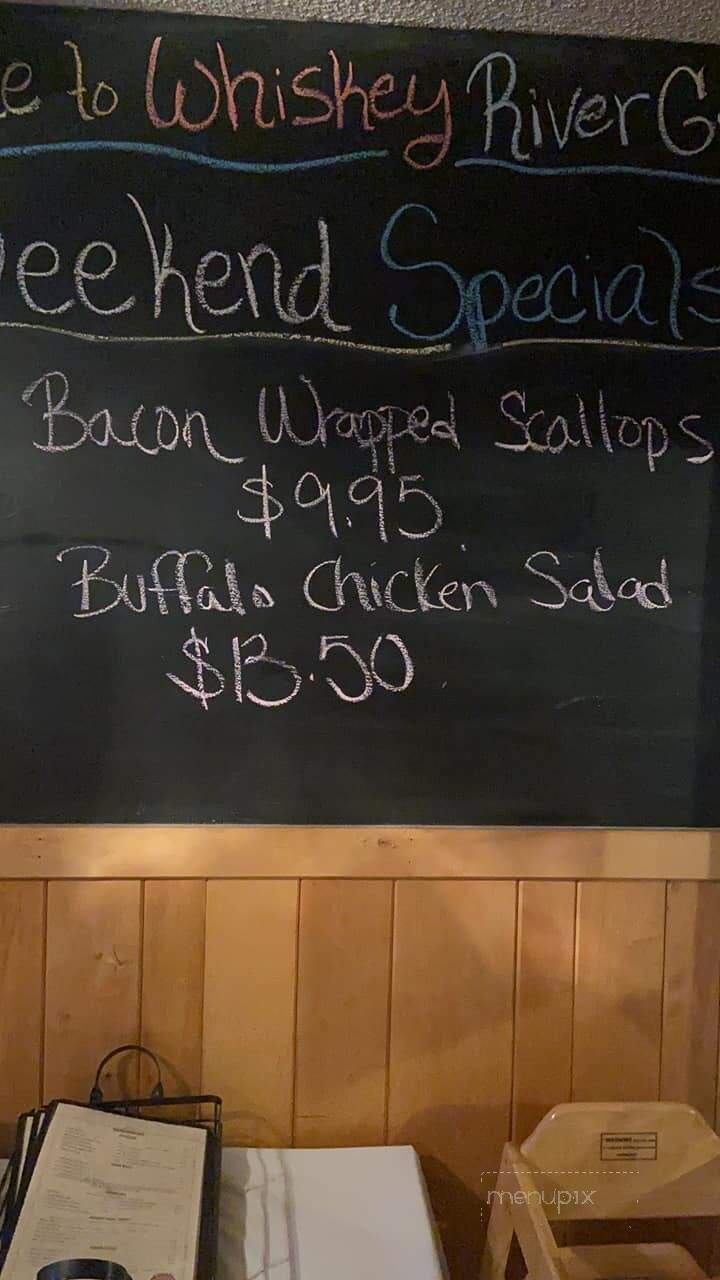 e to Whiskey River G
eekend Specials
Bacon Wrapped Scallops
$9.95
Buffalo Chicken Salad
$13.50
WARNING
menupix